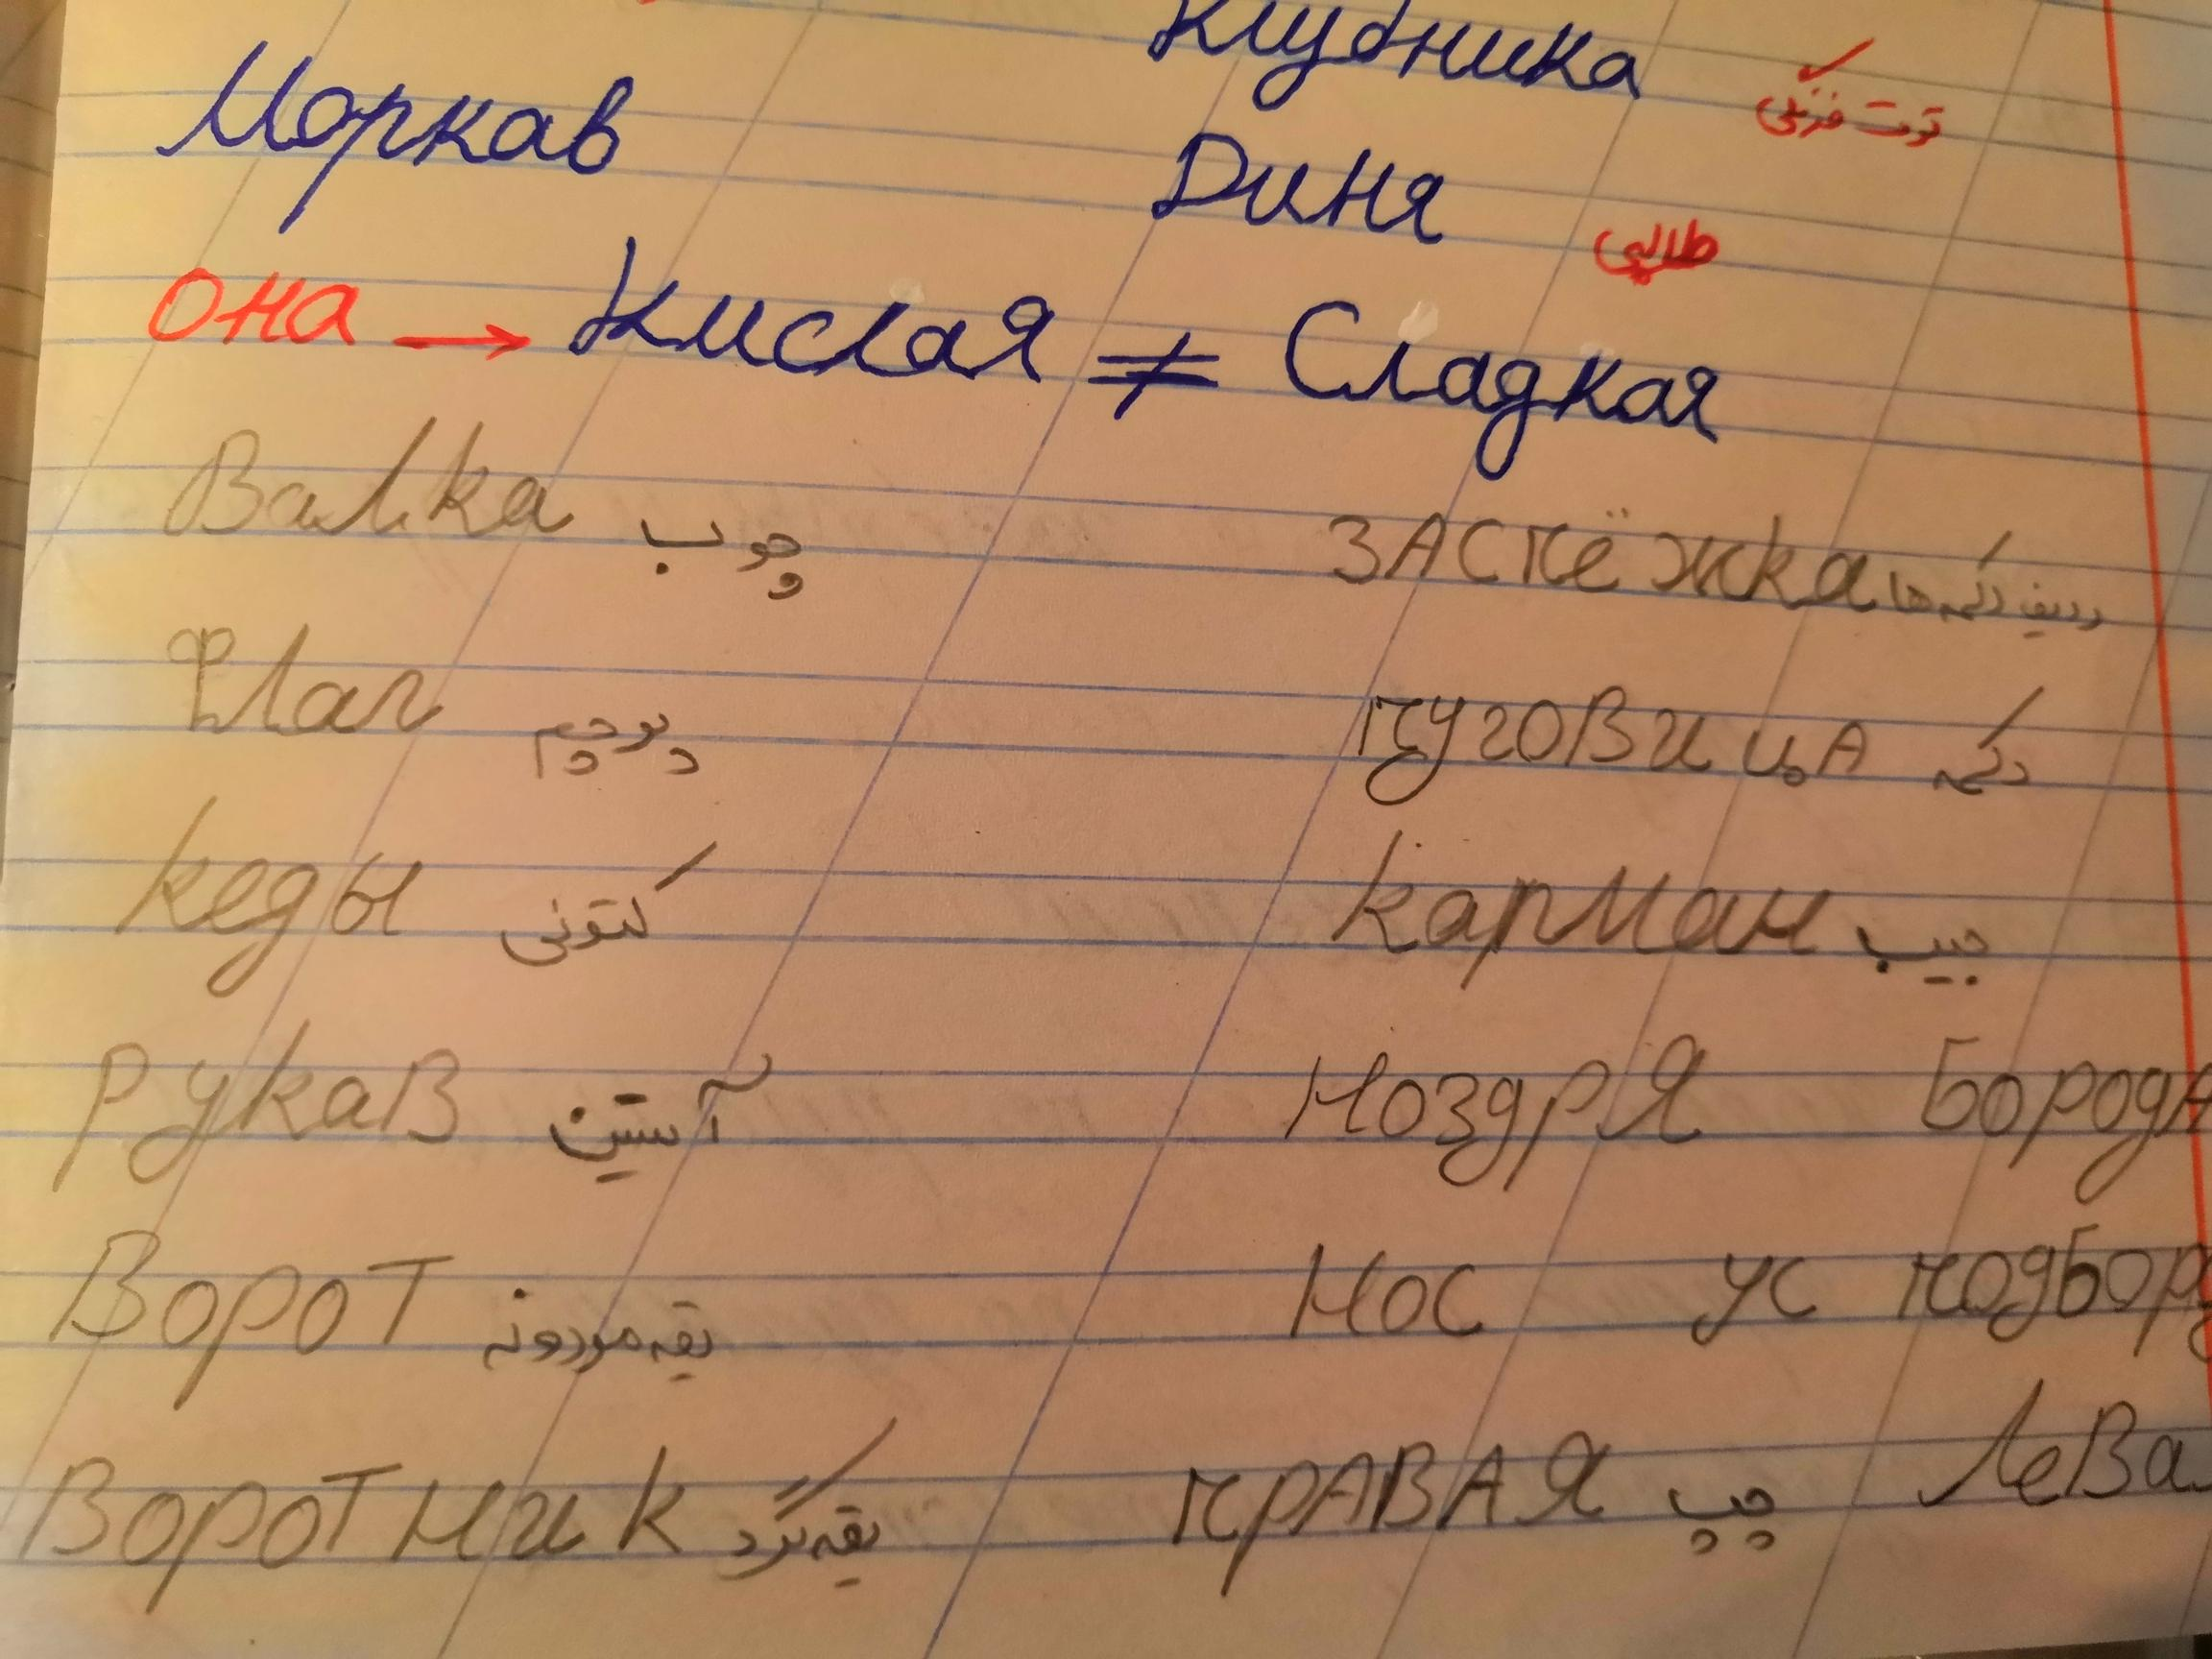 Клубника توت فرنگی
Моркав Диня طالبی
она → Кислая ≠ Сладкая
Валка چوب застёжка ردیف دکمه ها
Флаг پرچم пуговица دکمه
кеды کتونی карман جیب
рукав آستین ноздря борода
ворот یقه مردونه нос ус подборо
воротник یقه گرد правая چپ лева